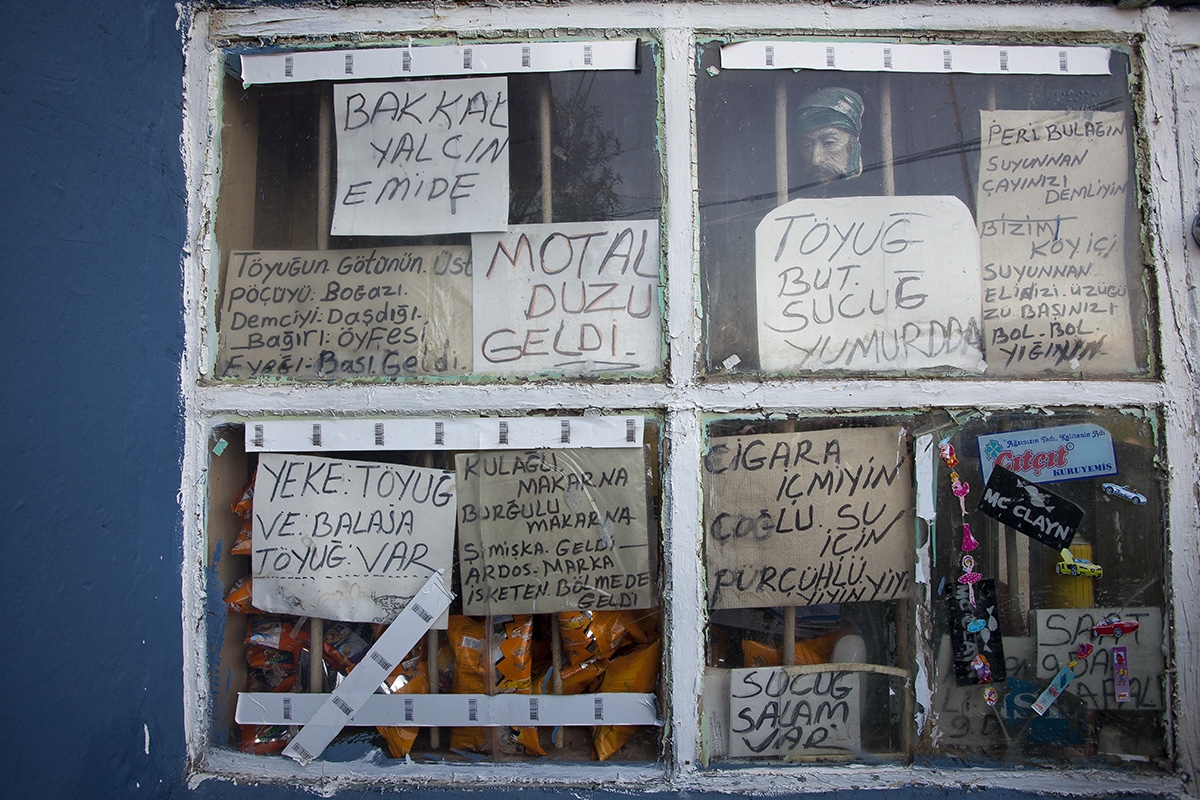 BAKKAL
YALCIN
EMIDE
TÖYUĞUN. GÖTÜNÜN. ÜST
PÖÇÜYÜ. BOĞAZI.
DEMCİYİ. DAŞDIĞI.
BAĞIRI: ÖYFESİ
EYEĞİ. BAŞI. GELDİ.
MOTAL
DUZU
GELDİ.
TÖYUĞ
BUT.
SUCUĞ
YUMURDDA
PERİ BULAĞIN
SUYUNNAN
ÇAYINIZI
DEMLİYİN
BİZİM
KÖYİÇİ
SUYUNNAN
ELİZİZİ. ÜZÜGÜ
ZU BAŞINIZI
BOL. BOL.
YIĞININ
YEKE. TÖYUĞ
VE. BALAJA
TÖYUĞ VAR
KULAĞLI.
MAKARNA
BURĞULU
MAKARNA
ŞİMİŞKA. GELDİ
ARDOS. MARKA
İSKETEN. BÖLMEDE
GELDİ
CİGARA
İÇMİYİN
ÇOĞLU. SU
İÇİN
PÜRÇÜHLÜ
YİYİN YİYİN
SUCUĞ
SALAM
VAR
Ağzınızın Tadı, Kalitenin Adı
Çıtçıt
KURUYEMİŞ
MC CLAYN
SAAT